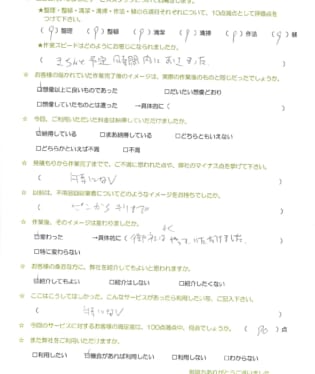 ※整理・整頓・清潔・清掃・作法・躾の6項目それぞれについて、10点満点として評価点を
つけて下さい。
(9)整理 ( )整頓 ( )清潔 ( )清掃 ( )作法 (9)躾
★作業スピードはどのようにお感じになられましたか。
☆ お客様の描かれていた作業完了後のイメージは、実際の作業後のものと同じだったでしょうか。
□想像以上に良いものであった □だいたい想像どおり
□想像していたものとは違った →具体的に(
☆ 今回、ご利用いただいた料金は納得していただけましたか。
☑納得している □まあ納得している □どちらともいえない
□どちらかといえば不満 □不満
☆ 見積もりから作業完了までで、ご不満に思われた点や、弊社のマイナス点を挙げて下さい。
( 特になし )
☆ 以前は、不用品回収業者についてどのようなイメージをお持ちでしたか。
( ピンからキリまで )
☆ 作業後、そのイメージは変わりましたか。
☑変わった →具体的に(御社はよくやって、いただけました。)
□特に変わらない
☆ お客様の身近な方に、弊社を紹介してもよいと思われますか。
☑紹介してもよい □紹介はしない □紹介したくない
☆ ここはこうしてほしかった、こんなサービスがあったら利用したい等、ご記入下さい。
( 特になし )
☆ 今回のサービスに対するお客様の満足度は、100点満点中、何点でしょうか。 (90)点
☆ また弊社をご利用いただけますか。
□利用したい ☑機会があれば利用したい □利用しない □わからない